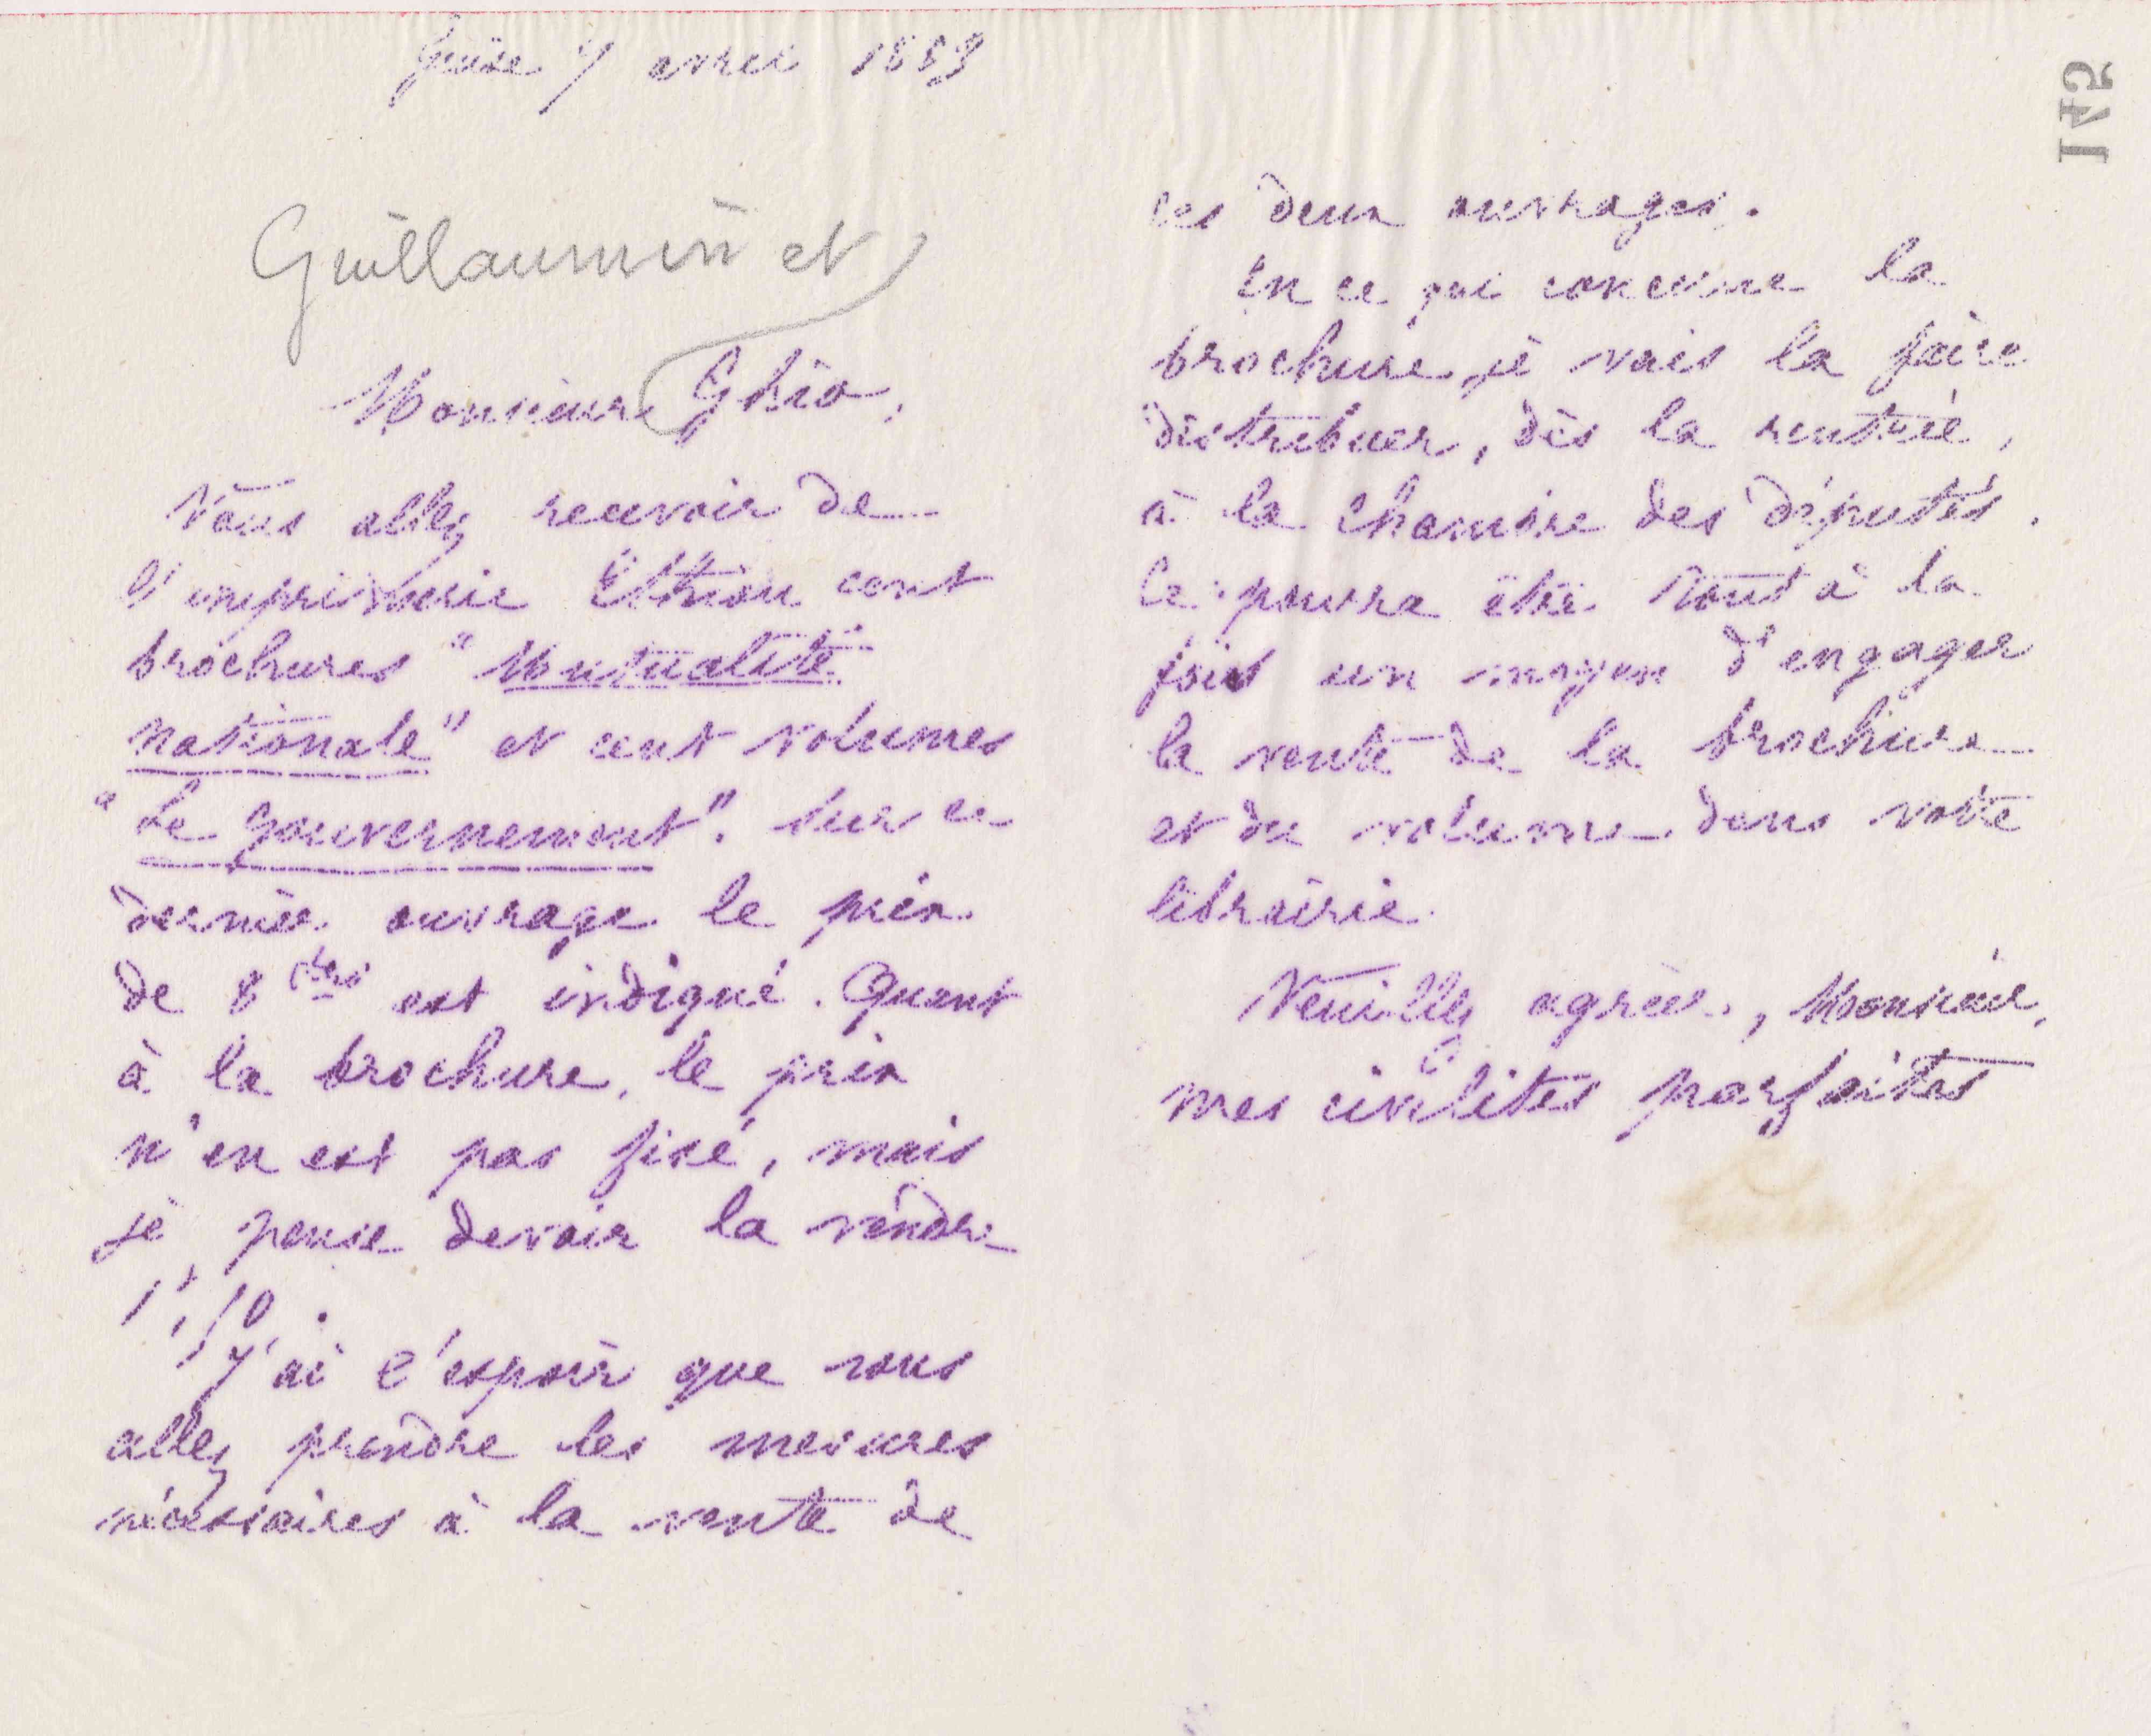 Guise 7 avril 1883
Guillaumin et
Monsieur Ghio,
Vous allez recevoir de
l'imprimerie cent
brochures "Mutualité
nationale" et cent volumes
"Le Gouvernement". Sur ce
dernier ouvrage le prix
de 8 est indiqué. Quant
à la brochure, le prix
n'en est pas fixé, mais
je pense devoir la vendre
1f,50.
J'ai l'espoir que vous
allez prendre les mesures
nécessaires à la vente de
ces deux ouvrages.
En ce qui concerne la
brochure, je vais la faire
distribuer, dès la rentrée,
à la Chambre des députés.
Ce pourra être tout à la
fois un moyen d'engager
la vente de la brochure
et du volume dans votre
librairie.
Veuillez agréer, Monsieur,
mes civilités parfaites
145